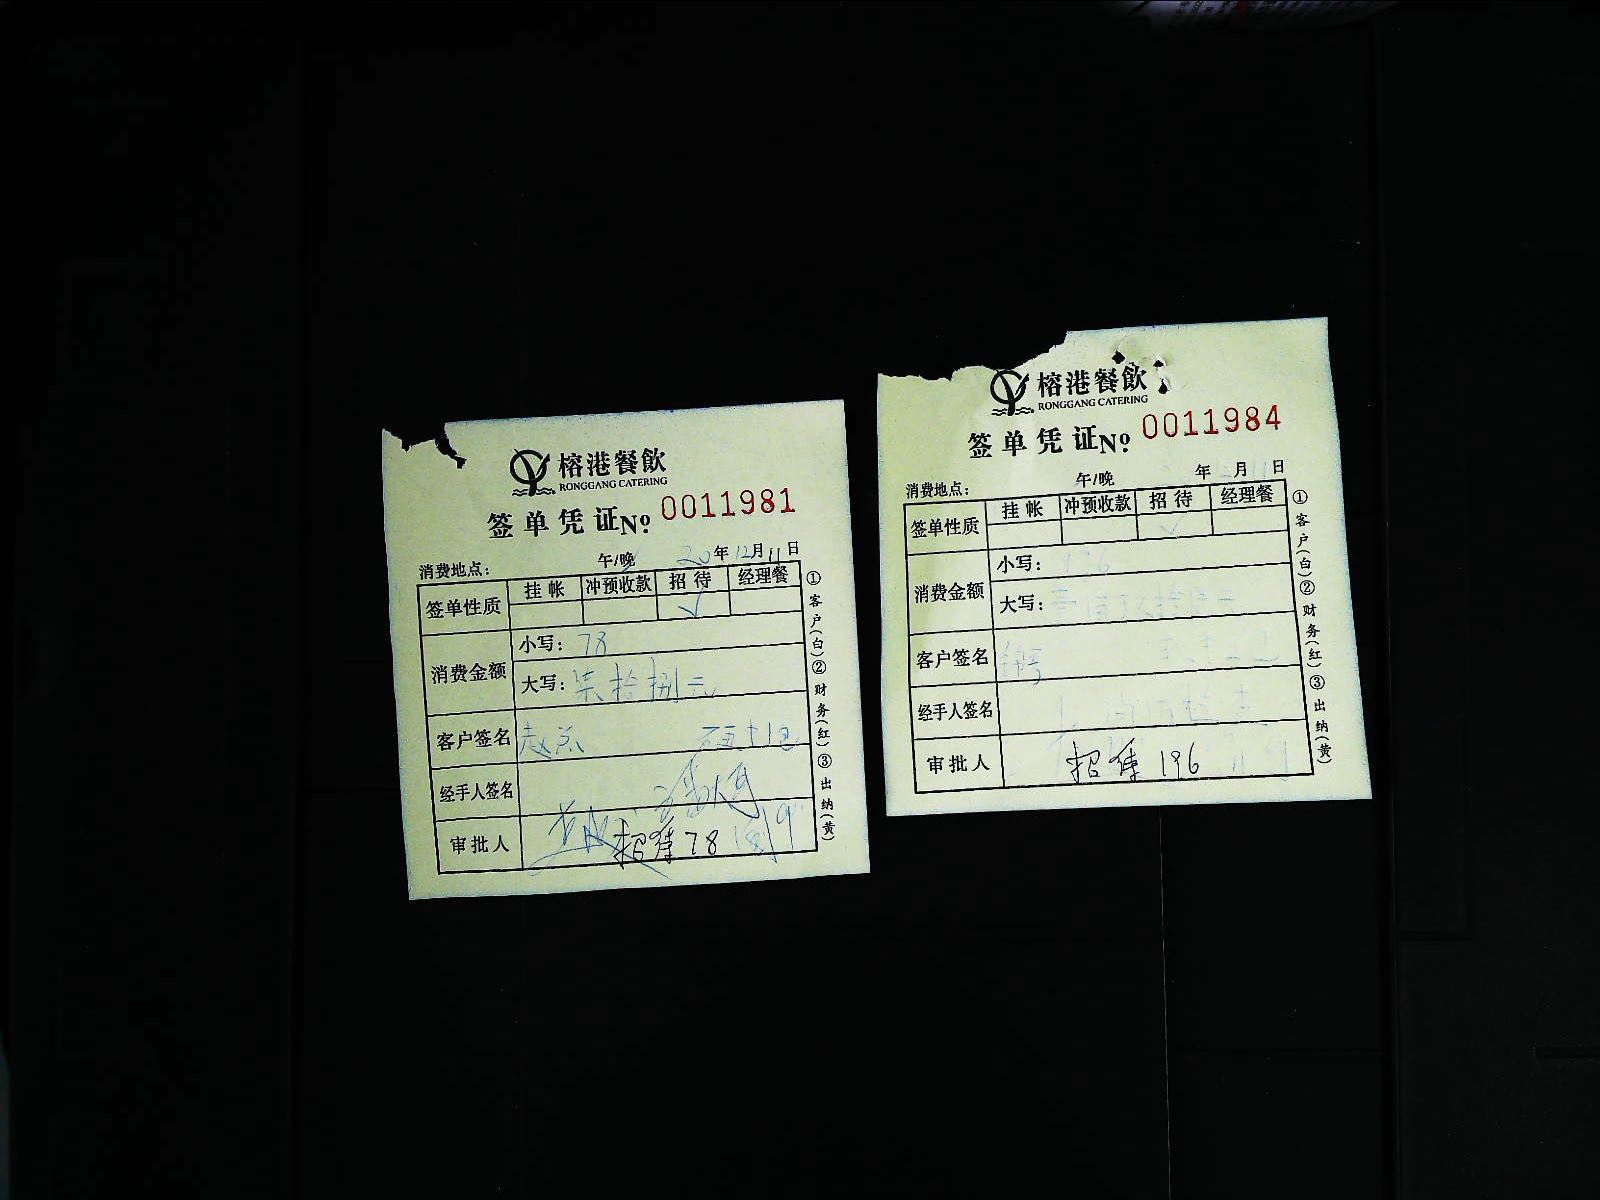 榕港餐飲
RONGGANG CATERING
签单凭证No. 0011981
消费地点： 午/晚 20年12月11日
签单性质 挂帐 冲预收款 招待 经理餐
√
消费金额 小写：78
大写：柒拾捌元
客户签名 赵总
经手人签名
审批人 招待 78
①客户(白)②财务(红)③出纳(黄)
榕港餐飲
RONGGANG CATERING
签单凭证No. 0011984
消费地点： 午/晚 年12月11日
签单性质 挂帐 冲预收款 招待 经理餐
√
消费金额 小写：196
大写：
客户签名
经手人签名
审批人 招待 196
①客户(白)②财务(红)③出纳(黄)